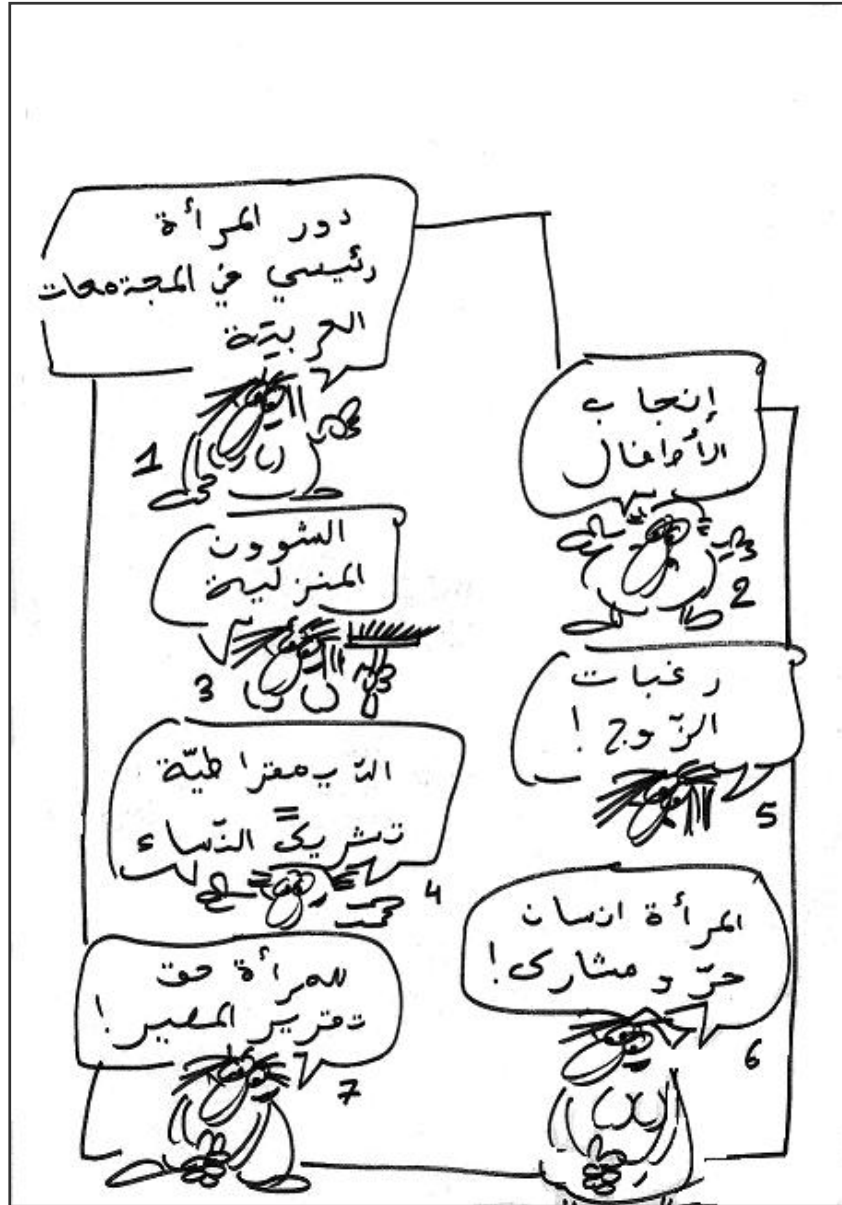 دور المرأة
رئيسي في المجتمعات
العربيّة
1
إنجاب
الأطفال
2
الشوون
المنزلية
3
الدّيمقراطيّة
=
تشريك النّساء
4
رغبات
الزّوج!
5
المرأة انسان
حرّ و مشارك!
6
للمرأة حق
تقرير المصير!
7